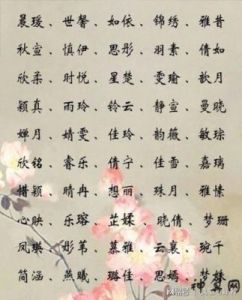 晨瑗、世馨、如依、锦绣、雅昔
秋宣、慎伊、思彤、羽素、倩如
欣柔、时悦、星楚、雯瑜、歆月
颖真、雨玲、铃云、静宣、曼晓
婵月、婧雯、佳玲、韵薇、敏琮
欣铭、睿乐、倩宁、佳雪、嘉璃
惜颖、晴冉、想丽、珠月、雅愫
心映、乐瑢、芷婼、晓倩、梦珊
凤琪、彤苇、慕雅、云襄、琬千
简涵、燕曦、璐佳、思嫣、梦
神算网